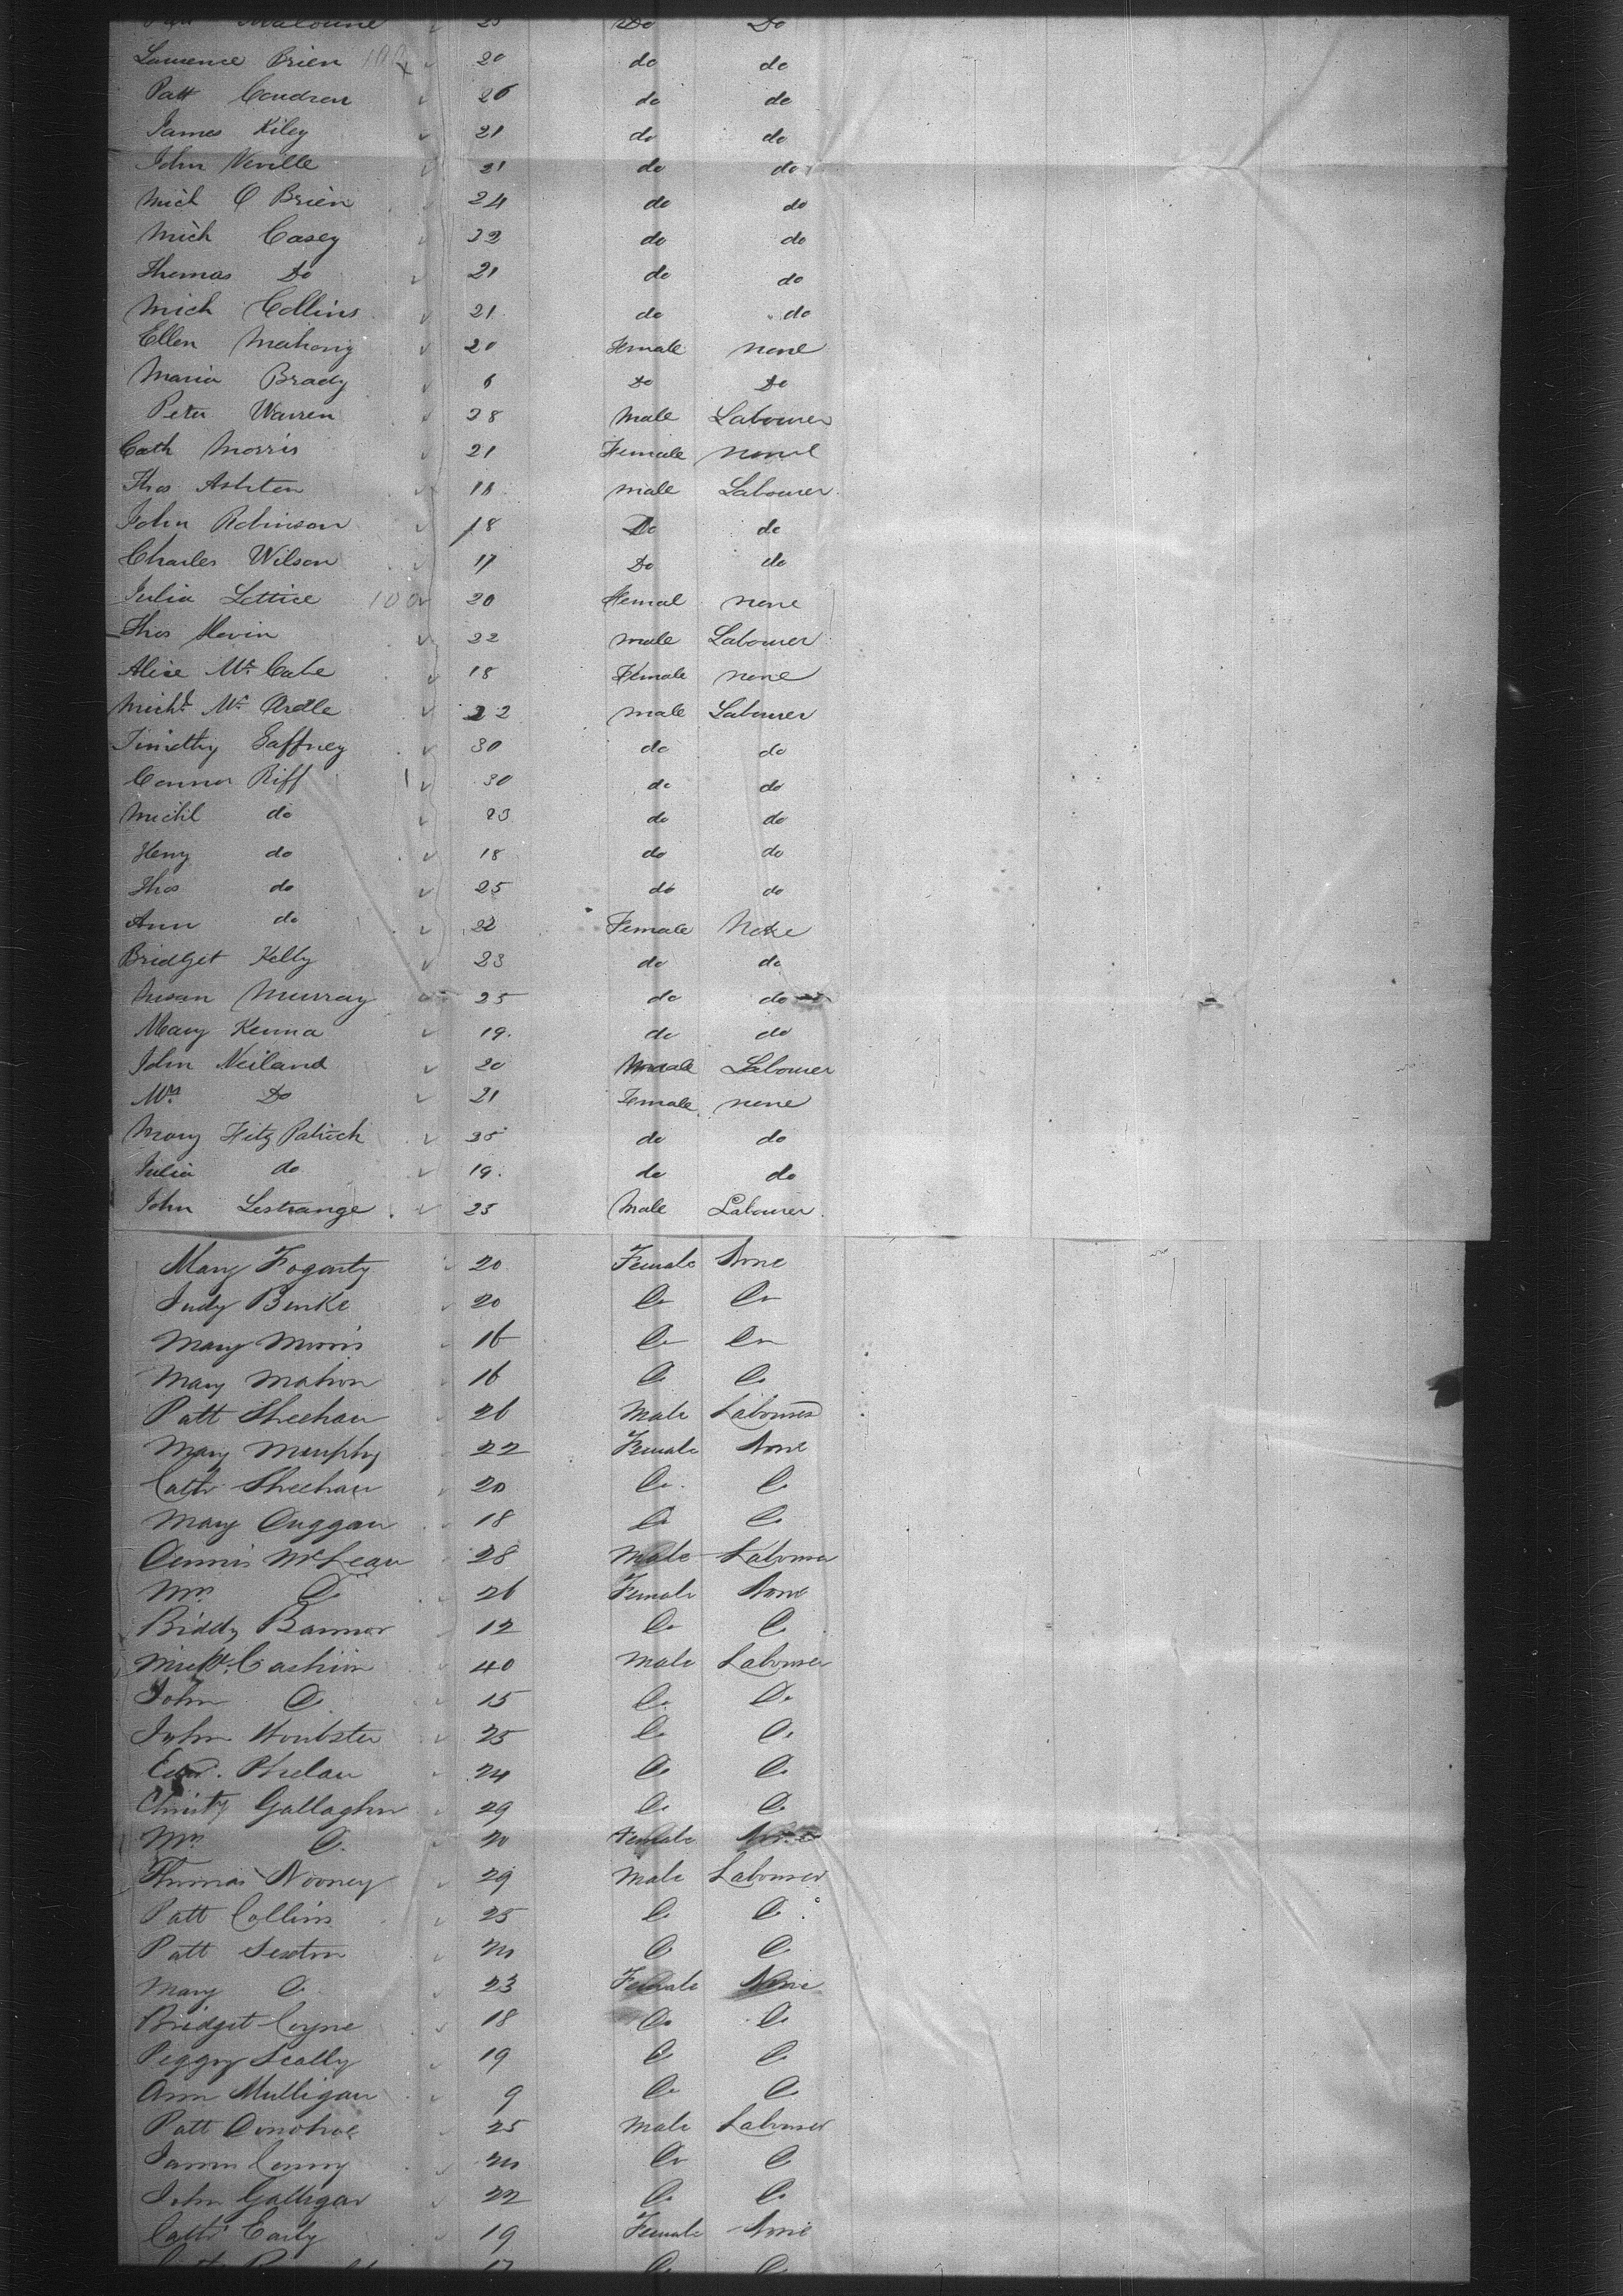 Malowne 25 Do Do
Laurence Brien 100 20 do do
Patt Condron 26 do do
James Kiley 21 do do
John Neville 21 do do
Mich O Brien 24 do do
Mich Casey 32 do do
Thomas Do 21 do do
Mich Collins 21 do do
Ellen Mahony 20 Female none
Maria Brady 6 Do Do
Peter Warren 28 Male Labourer
Cath Morris 21 Female none
Thos Ashton 18 male Labourer
John Robinson 18 Do do
Charles Wilson 17 Do do
Julia Lettice 100 20 Femal none
Thos Kevin 22 male Labourer
Alice Mc Cabe 18 Female none
Michl Mc Ardle 22 male Labourer
Timothy Gaffney 30 do do
Connor Riff 30 do do
Michl do 23 do do
Heny do 18 do do
Thos do 25 do do
Ann do 22 Female None
Bridget Kelly 23 do do
Susan Murray 25 do do
Mary Kenna 19. do do
John Neiland 20 Male Labourer
Mrs Do 21 Female none
Mary Fitz Patrick 35 do do
Julia do 19. do do
John Lestrange. 25 Male Labourer.
Mary Fogarty 20 Female None
Judy Burke 20 Do Do
Mary Morris 16 Do Do
Mary Mahon 16 Do Do
Patt Sheehan 26 Male Labourer
Mary Murphy 22 Female None
Cath Sheehan 20 Do Do
Mary Duggan 18 Do Do
Dennis McLean 28 Male Labourer
Mrs Do 26 Female None
Biddy Bannor 12 Do Do
Michl. Cashion 40 Male Labourer
John Do 15 Do Do
John 25 Do Do
Edwd. Phelan 24 Do Do
Christy Gallagher 29 Do Do
Mrs Do. 20 Female None
Thomas Nooney 29 Male Labourer
Patt Collins 25 Do Do
Patt Sexton 20 Do Do
Mary Do 23 Female None
Bridget Coyne 18 Do Do
Peggy Scally 19 Do Do
Ann Mulligan 9 Do Do
Patt Donohoe 25 Male Labourer
James Conroy 20 Do Do
John Galligan 22 Do Do
Cath Early 19 Female None
17 Do Do